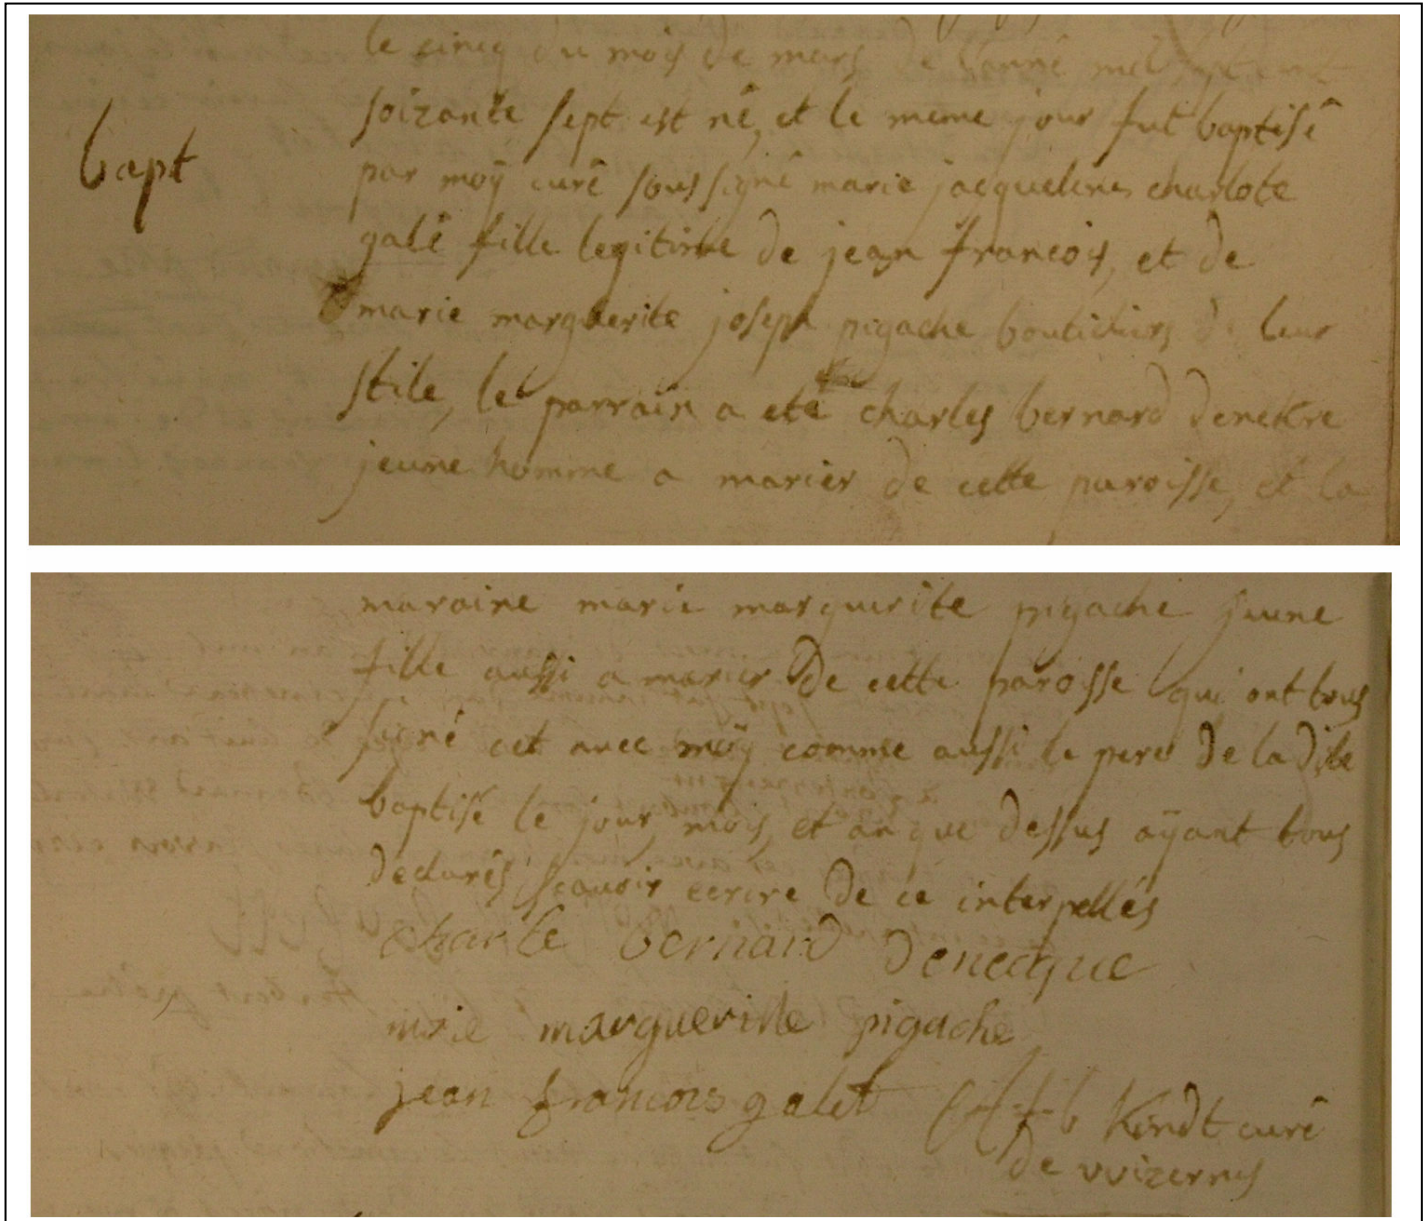 le cincq du mois de mars de l'anné mil sept cent
bapt
soizante sept est né, et le meme jour fut baptisé
par moÿ curé soussigné marie jacqueline charlote
galé fille legitime de jean francois, et de
marie marguerite joseph pigache boutichiers de leur
stile, le parrain a eté charles bernard denekre
jeune homme a marier de cette paroisse, et la
maraine marie marguerite pigache jeune
fille aussi a marier de cette paroisse qui ont tous
signé cet avec moÿ comme aussi le pere de la dite
baptisé le jour, mois, et an que dessus aÿant tous
declarés scavoir ecrire de ce interpellés
charle bernard denecque
marie margueritte pigache
jean francois galet Kindt curé
de wizernes